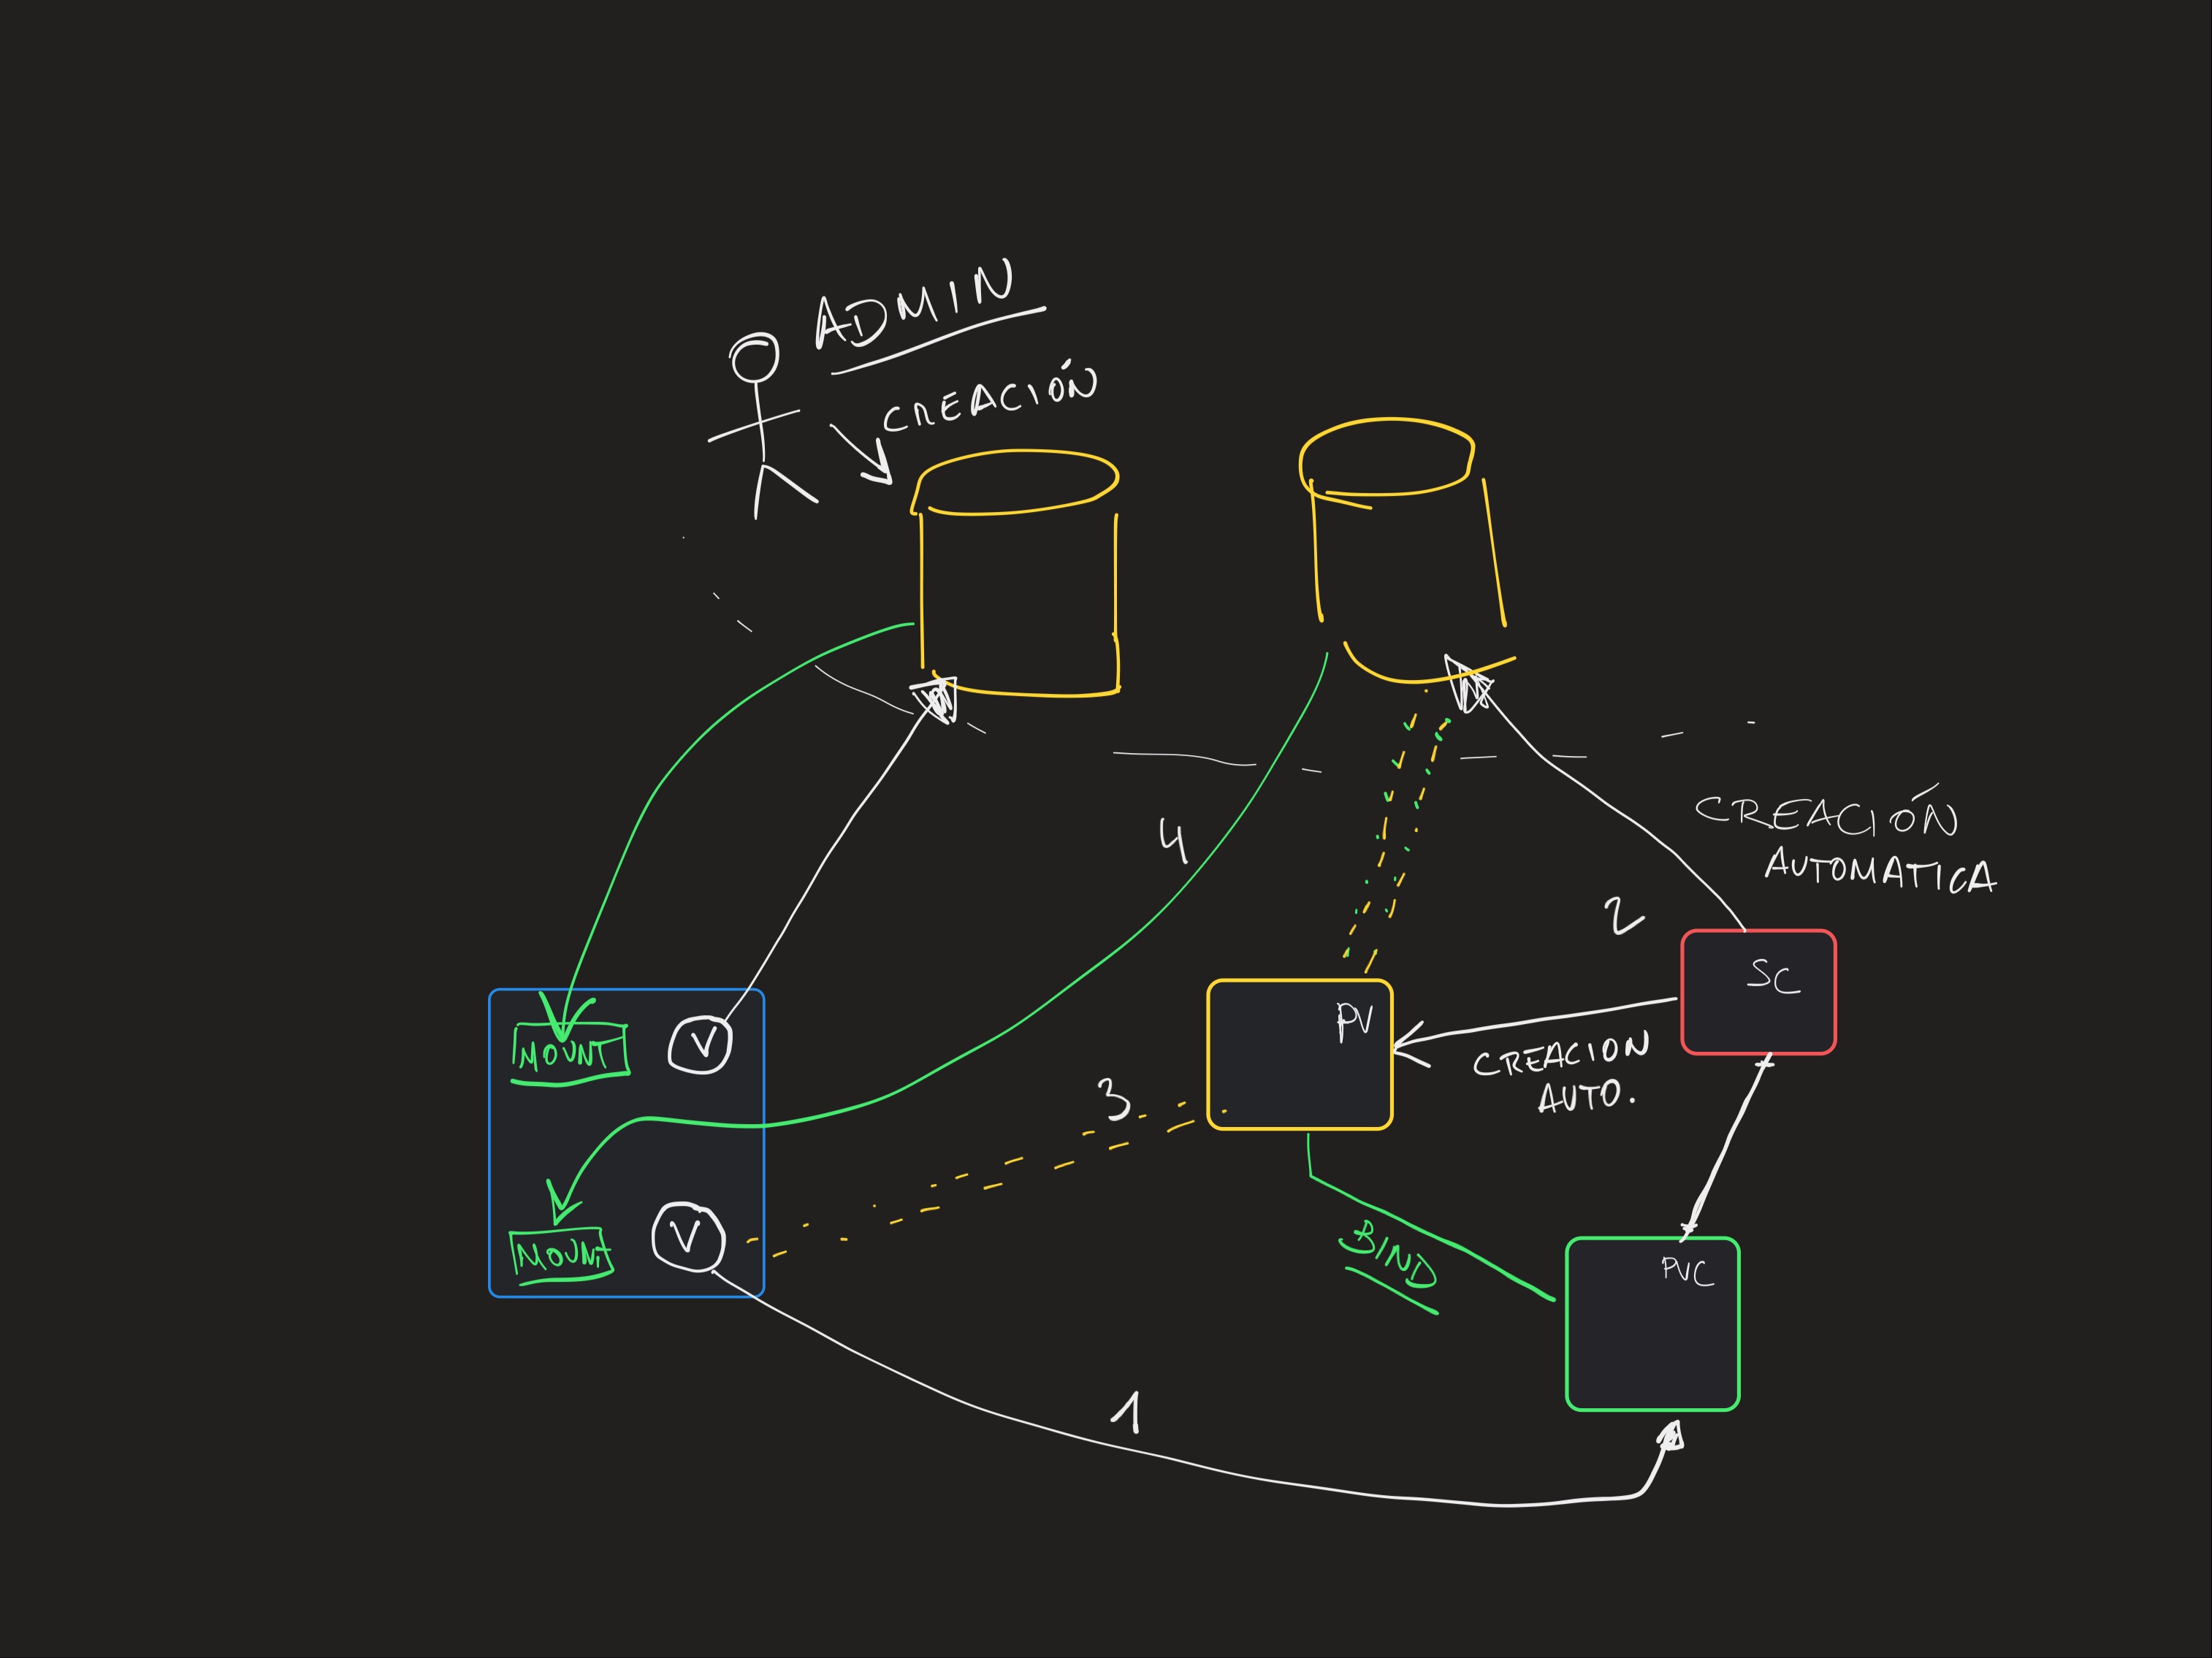 ADMIN
CREACIÓN
4
CREACIÓN
AUTOMATICA
2
SC
PV
MOUNT
V
CREACION
AUTO.
3
V
MOUNT
BIND
PVC
1